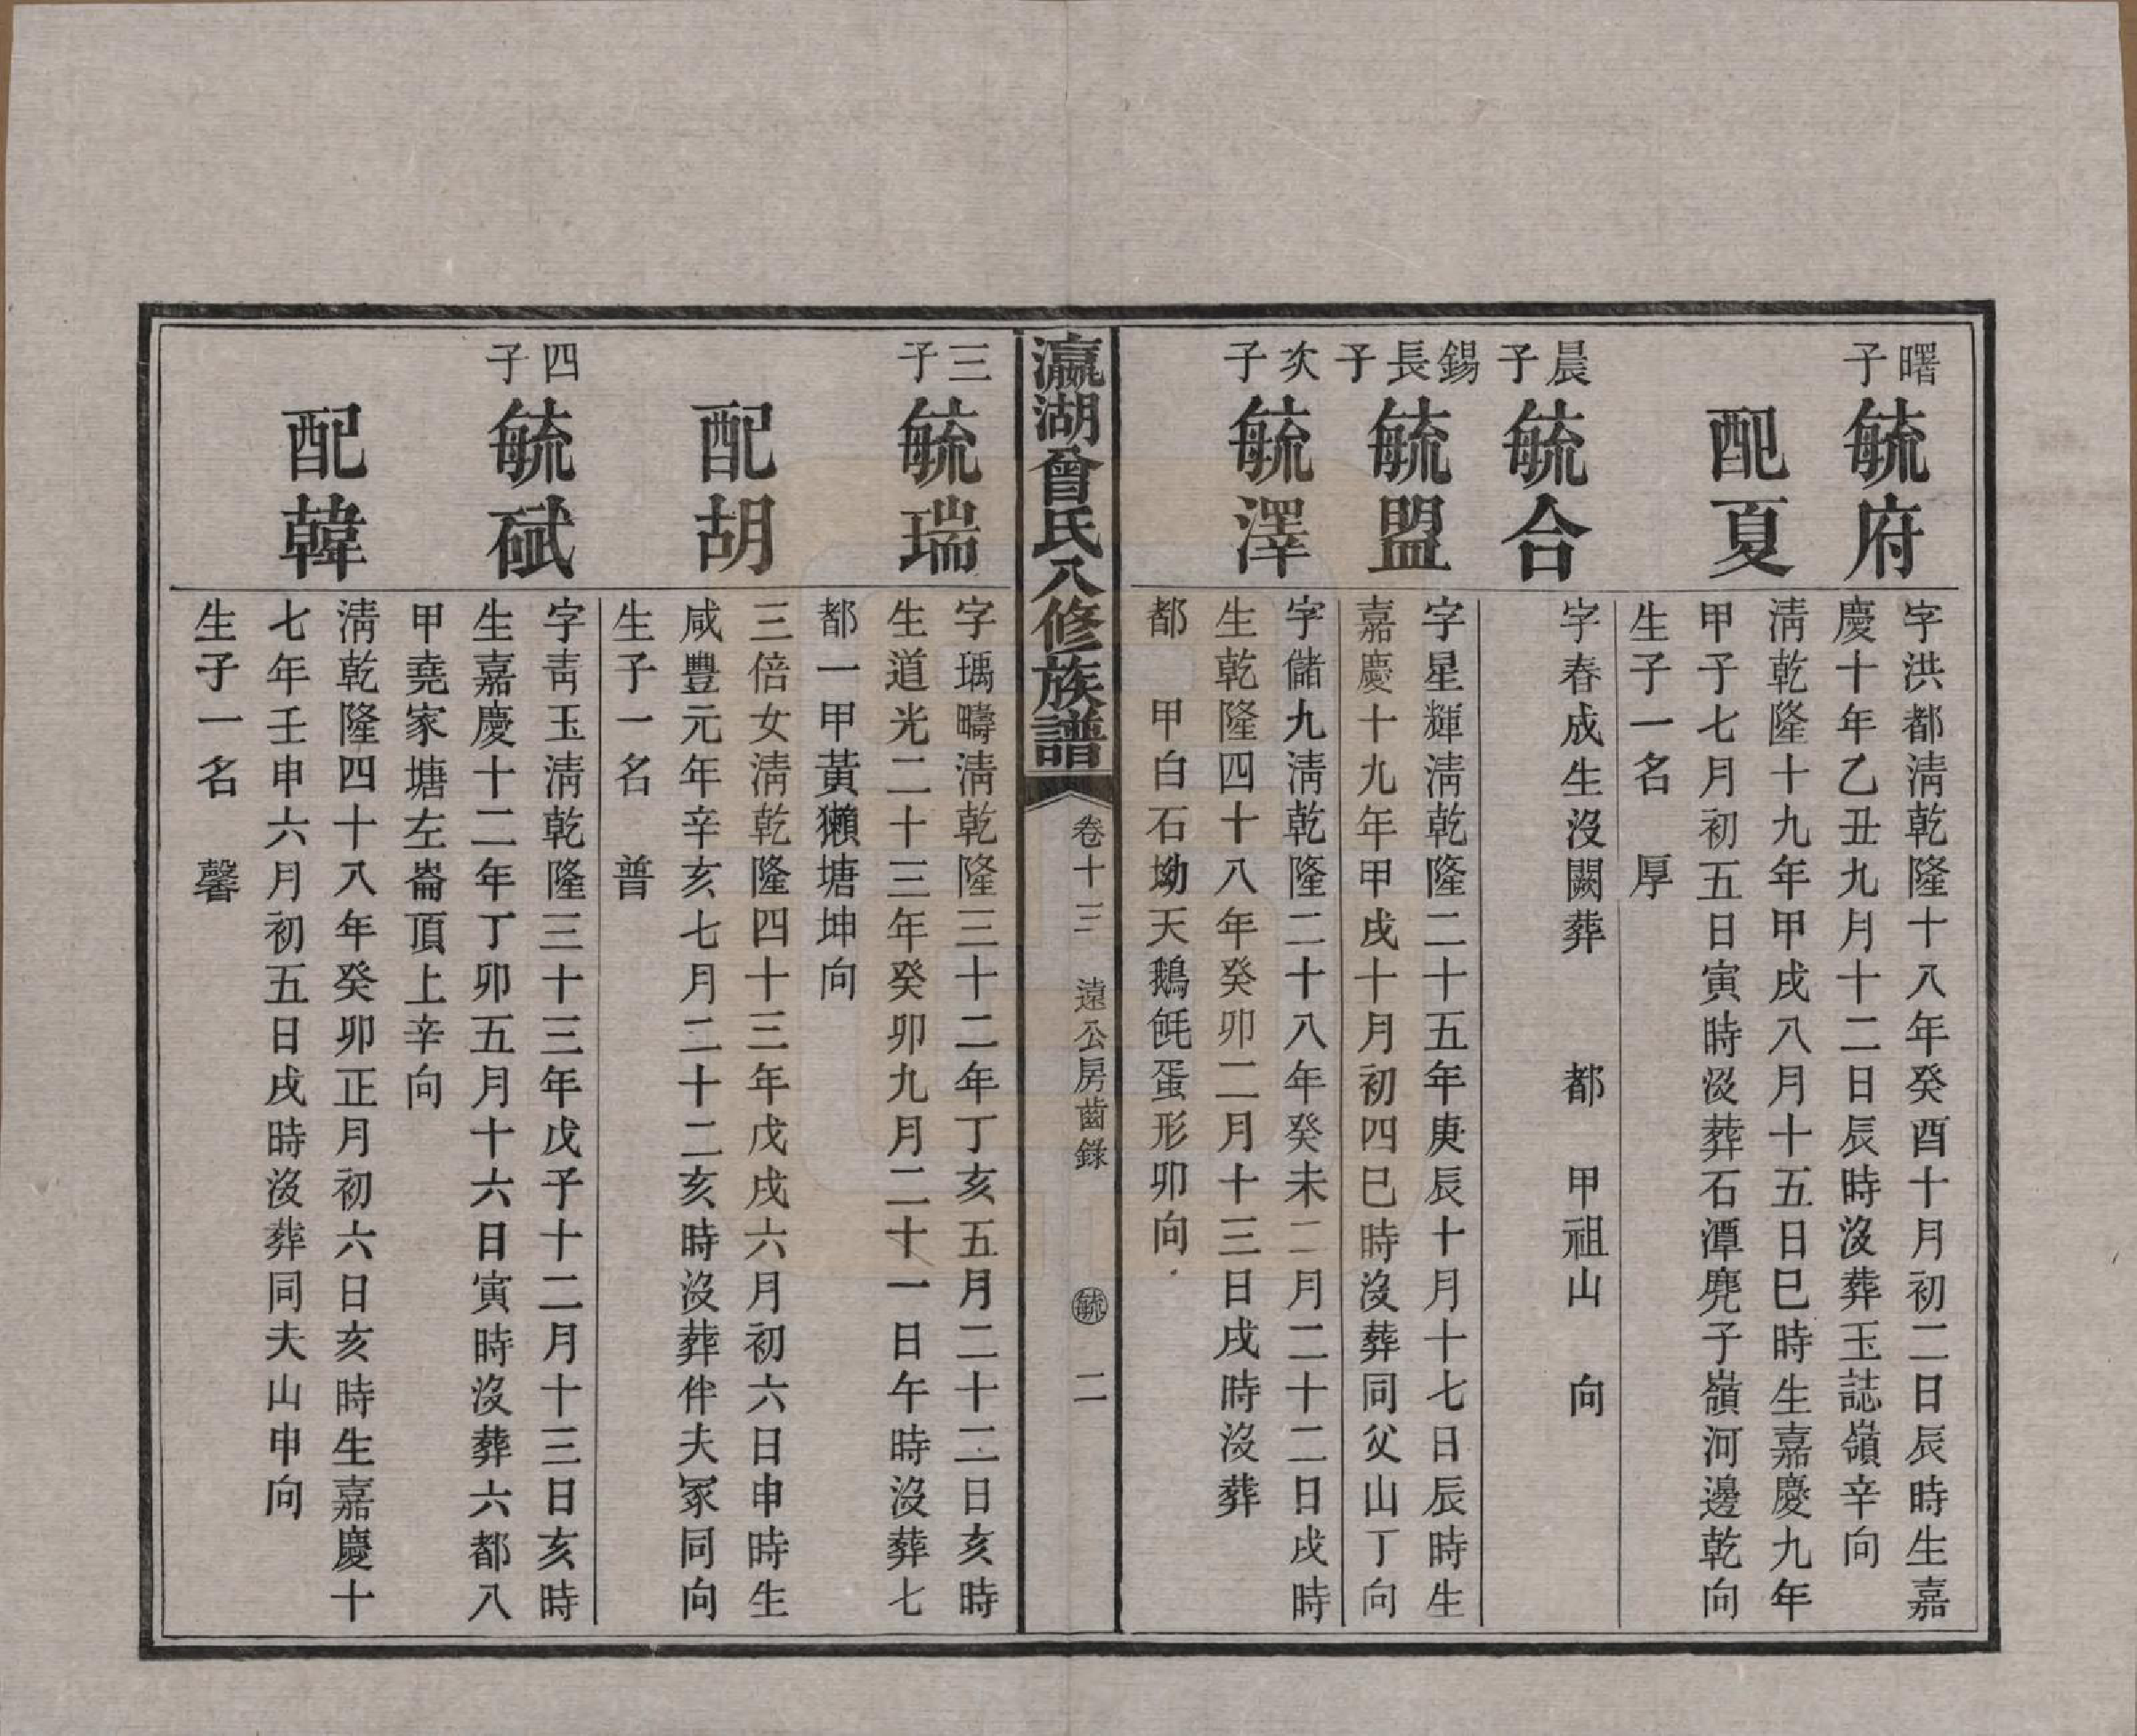 曙子
毓府
字洪都淸乾隆十八年癸酉十月初二日辰時生嘉
慶十年乙丑九月十二日辰時沒葬玉誌嶺辛向
配夏
淸乾隆十九年甲戌八月十五日巳時生嘉慶九年
甲子七月初五日寅時沒葬石潭麂子嶺河邊乾向
生子一名　厚
晨子
毓合
字春成生沒闕葬　　都　甲祖山　向
錫長子
毓盟
字星輝淸乾隆二十五年庚辰十月十七日辰時生
嘉慶十九年甲戌十月初四巳時沒葬同父山丁向
次子
毓澤
字儲九淸乾隆二十八年癸未二月二十二日戌時
生乾隆四十八年癸卯二月十三日戌時沒葬
都　甲白石坳天鵝毻蛋形卯向
瀛湖曾氏八修族譜
卷十三　遠公房齒錄　毓　二
三子
毓瑞
字瑀疇淸乾隆三十二年丁亥五月二十二日亥時
生道光二十三年癸卯九月二十一日午時沒葬七
都一甲黃獺塘坤向
配胡
三倍女淸乾隆四十三年戊戌六月初六日申時生
咸豐元年辛亥七月二十二亥時沒葬伴夫冢同向
生子一名　普
四子
毓碔
字靑玉淸乾隆三十三年戊子十二月十三日亥時
生嘉慶十二年丁卯五月十六日寅時沒葬六都八
甲堯家塘左崙頂上辛向
配韓
淸乾隆四十八年癸卯正月初六日亥時生嘉慶十
七年壬申六月初五日戌時沒葬同夫山申向
生子一名　馨